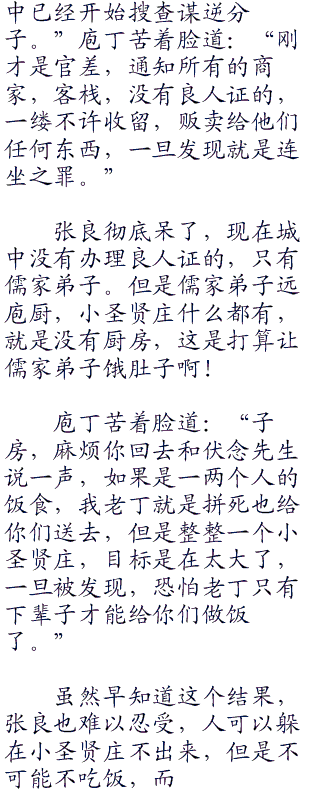 中已经开始搜查谋逆分
子。”庖丁苦着脸道：“刚
才是官差，通知所有的商
家，客栈，没有良人证的，
一缕不许收留，贩卖给他们
任何东西，一旦发现就是连
坐之罪。”
张良彻底呆了，现在城
中没有办理良人证的，只有
儒家弟子。但是儒家弟子远
庖厨，小圣贤庄什么都有，
就是没有厨房，这是打算让
儒家弟子饿肚子啊！
庖丁苦着脸道：“子
房，麻烦你回去和伏念先生
说一声，如果是一两个人的
饭食，我老丁就是拼死也给
你们送去，但是整整一个小
圣贤庄，目标是在太大了，
一旦被发现，恐怕老丁只有
下辈子才能给你们做饭
了。”
虽然早知道这个结果，
张良也难以忍受，人可以躲
在小圣贤庄不出来，但是不
可能不吃饭，而